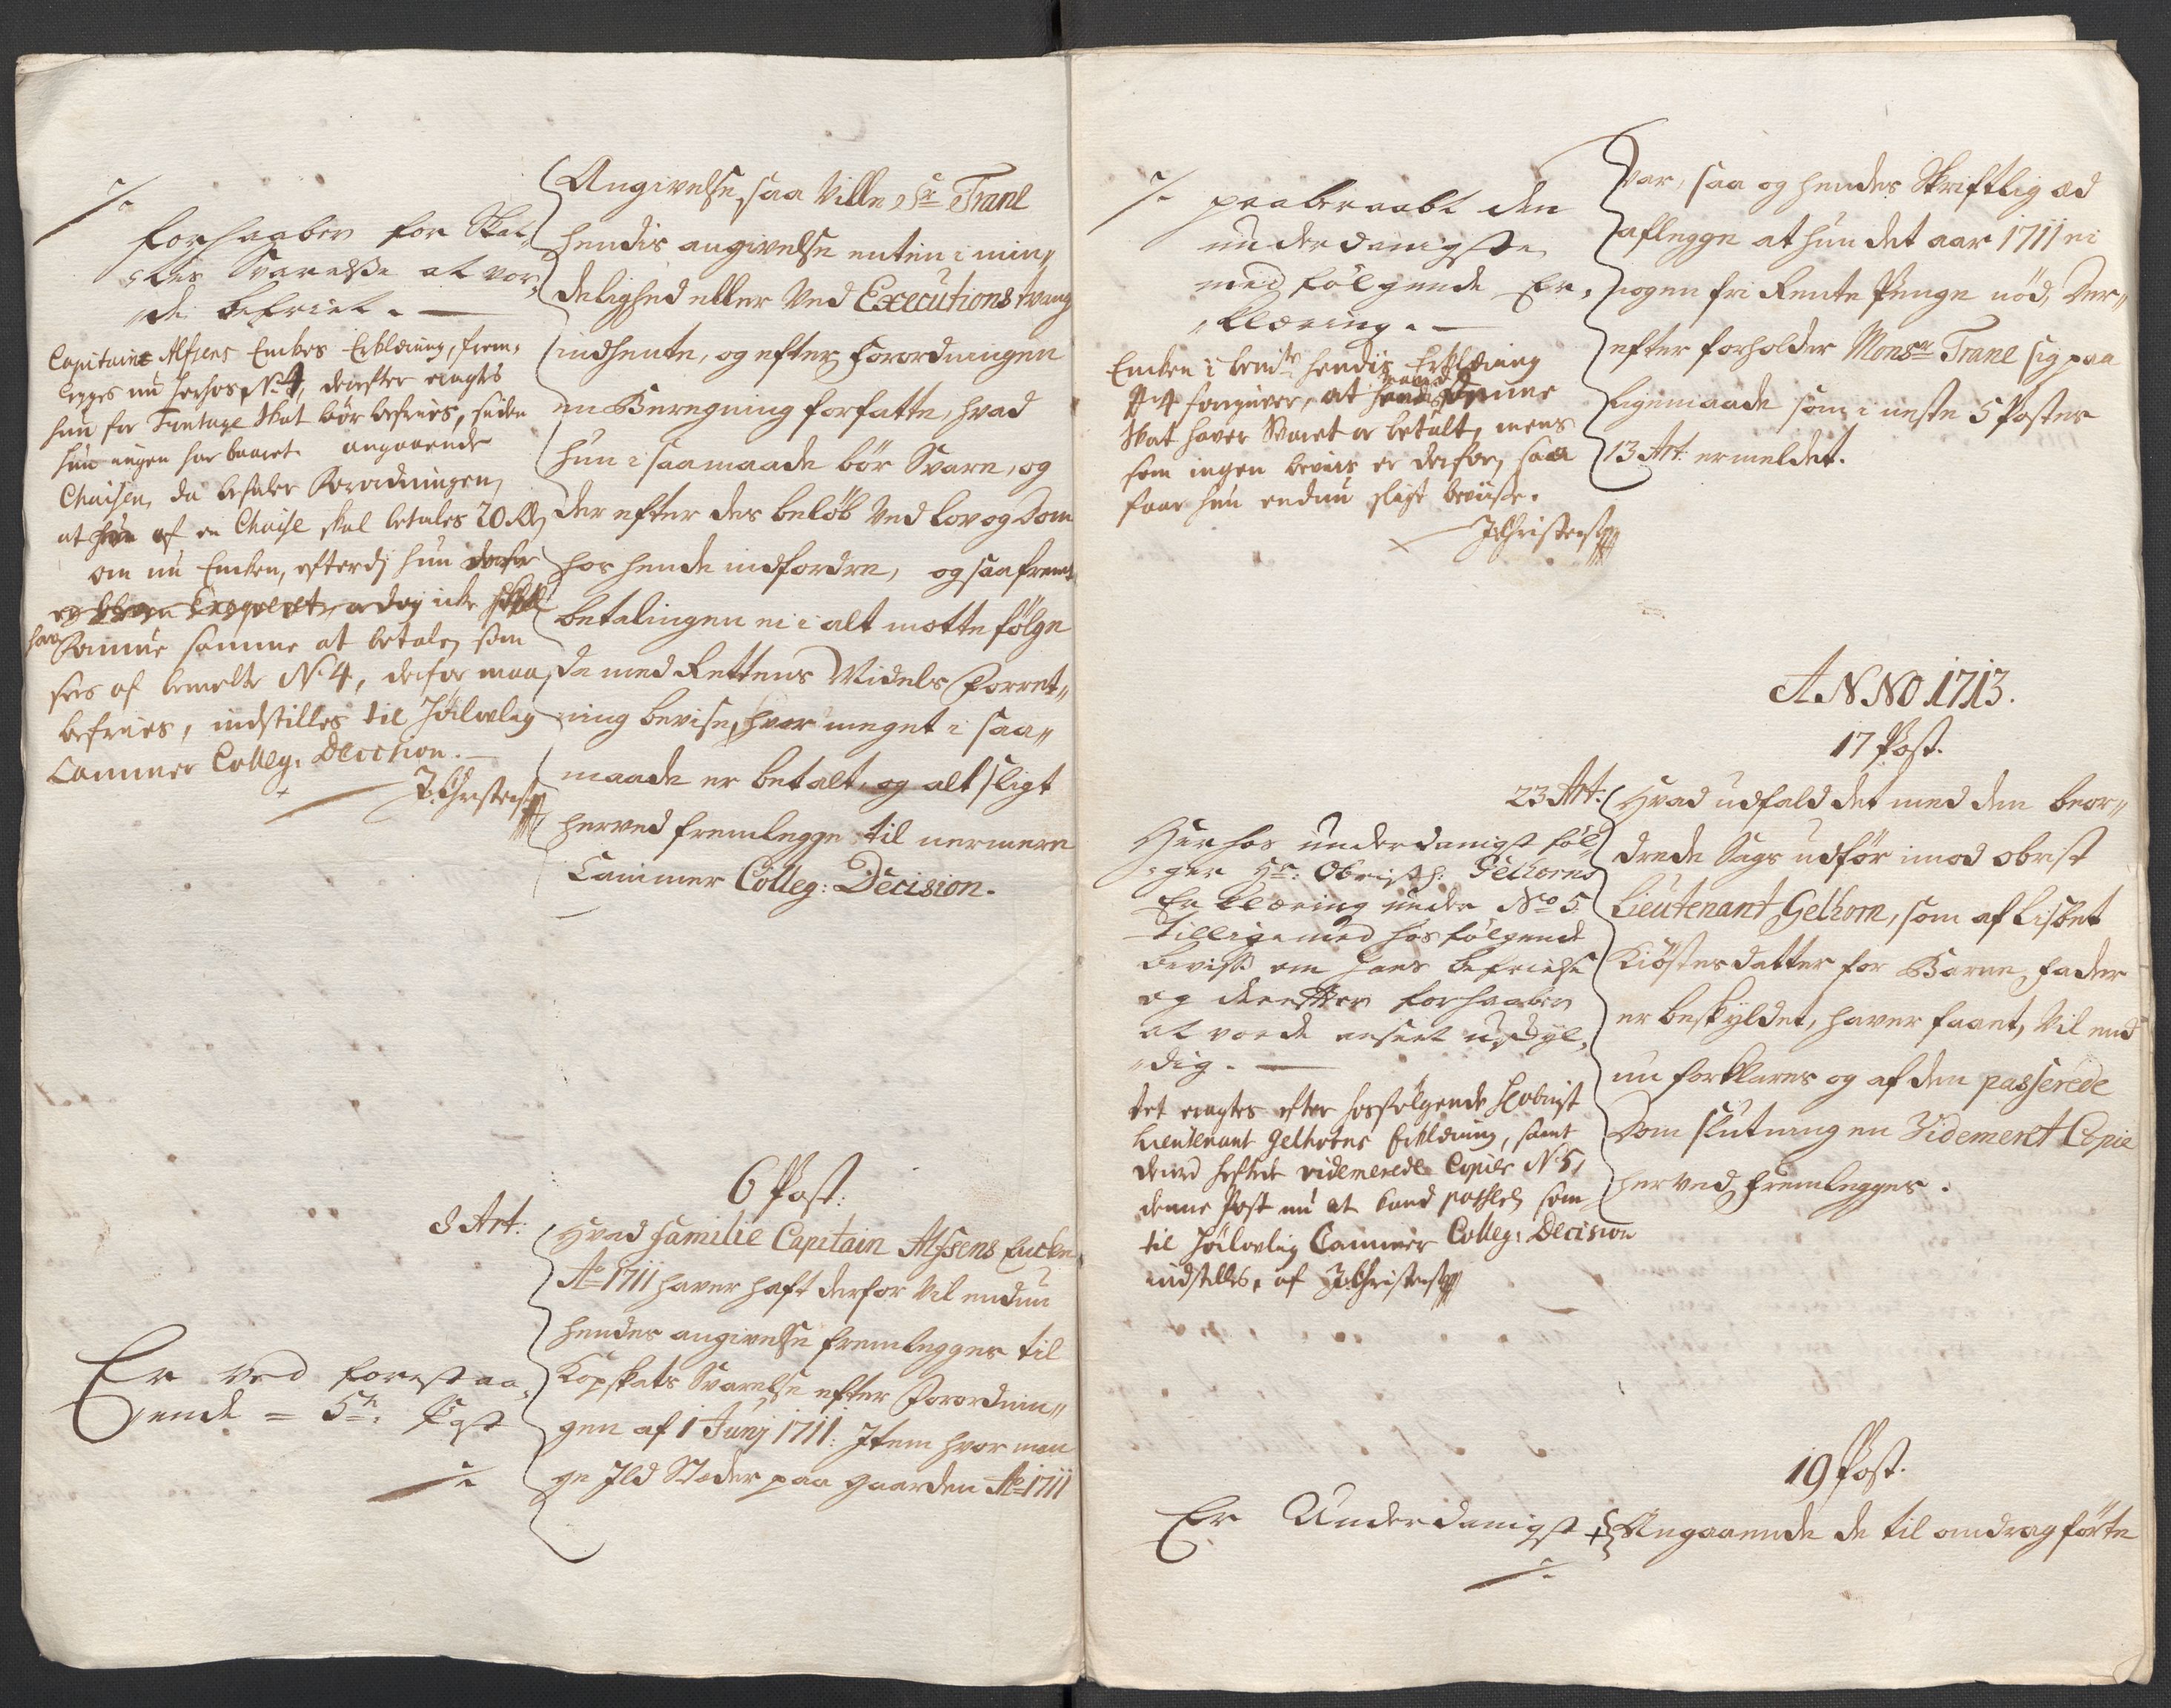 ⁒
forhaaber for Skat-
tes Svarelse at vor-
de befriet.
Capitaine Alfsens Enckes Erklæring, frem-
legges nu herhos No 4, derefter eragtes
hun for Fontage Skat bør befries, siden
hun ingen har baaret. angaaende
Chaisen, da befaler Forordningen,
at af en Chaise skal betales 20 Rdr,
om nu Encken, efterdj hun
er dog icke
har samme at betale, som
sees af bemelte No 4, derfor maa
befries, indstilles til Høilovlig
Cammer Colleg: Decision.
J. Christensen
Angivelse, saa Ville Sr Trane
hendis angivelse enten i min-
delighed eller Ved Executions tvang
indhente, og efter Forordningen
en Beregning forfatte, hvad
hun i saamaade bør Svare, og
der efter des beløb Ved lov og Dom
hos hende indfordre, og saafremt
betalingen ei i alt motte følge
da med Rettens Midels Forret-
ning bevise, hvor meget i saa-
maade er betalt, og alt sligt
herved fremlegge til nermere
Cammer Colleg: Decision.
6 Post:
8 Art:
Hvad Familie Capitain Alfsens Encke
Ao 1711 haver haft derfor Vil endnu
hendes angivelse fremlegges til
Kopskats Svarelse efter Forordnin-
gen af 1 Junj 1711: Item hvor man
ge Ild Stæder paa gaarden Ao 1711
Er ved forestaa-
ende = 5te Post
⁒
⁒
paaberaabt den
underdanigste
med følgende Er-
klæring.
Encken i hendis Erklæring
No 4 foregiver, at denne
Skat haver Svaret og betalt, mens
som ingen beviis er derfor, saa
faar hun endnu sligt beviise.
J. Christensen
Var, saa og hendes Skriftlig æd
aflegge at hun det aar 1711 ei
nogen fri Rente Penge nød, Der-
efter forholder Monsr Trane sig paa
ligemaade som i neste 5 Postes
13 Art: ermeldet.
ANNO 1713.
17 Post.
23 Art:
Hvad udfald det med den beor-
drede Sags udfør imod obrist
Lieutenant Gelhorn, som af Lisbet
Kiøstes datter for Barne fader
er beskyldet, haver faaet, Vil end
nu forklares og af den passerede
Dom slutning en Videmeret Copie
herved fremlegges.
Herhos underdanigst føl-
ger Hr: Obristl: Gelhorns
Erklæring under No 5
tilligemed hosfølgende
beviss om hans befrielse
og derefter forhaaber
at vorde anseet uskyl-
dig.
Det eragtes efter hosfølgende Hr Obrist
Lieutenant Gelhorns Erklæring, samt
derved heftede videmerede Copies No 5,
denne Post nu at kand passere, som
til Høilovlig Cammer Colleg: Decision
indstilles, af J. Christensen
19 Post.
Er Underdanigst
⁒
Angaaende de til omdrag førte